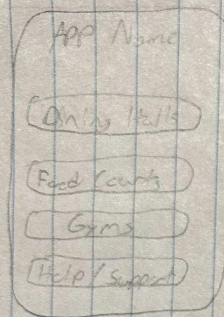 App Name
Dining Halls
Food Courts
Gyms
Help/Support